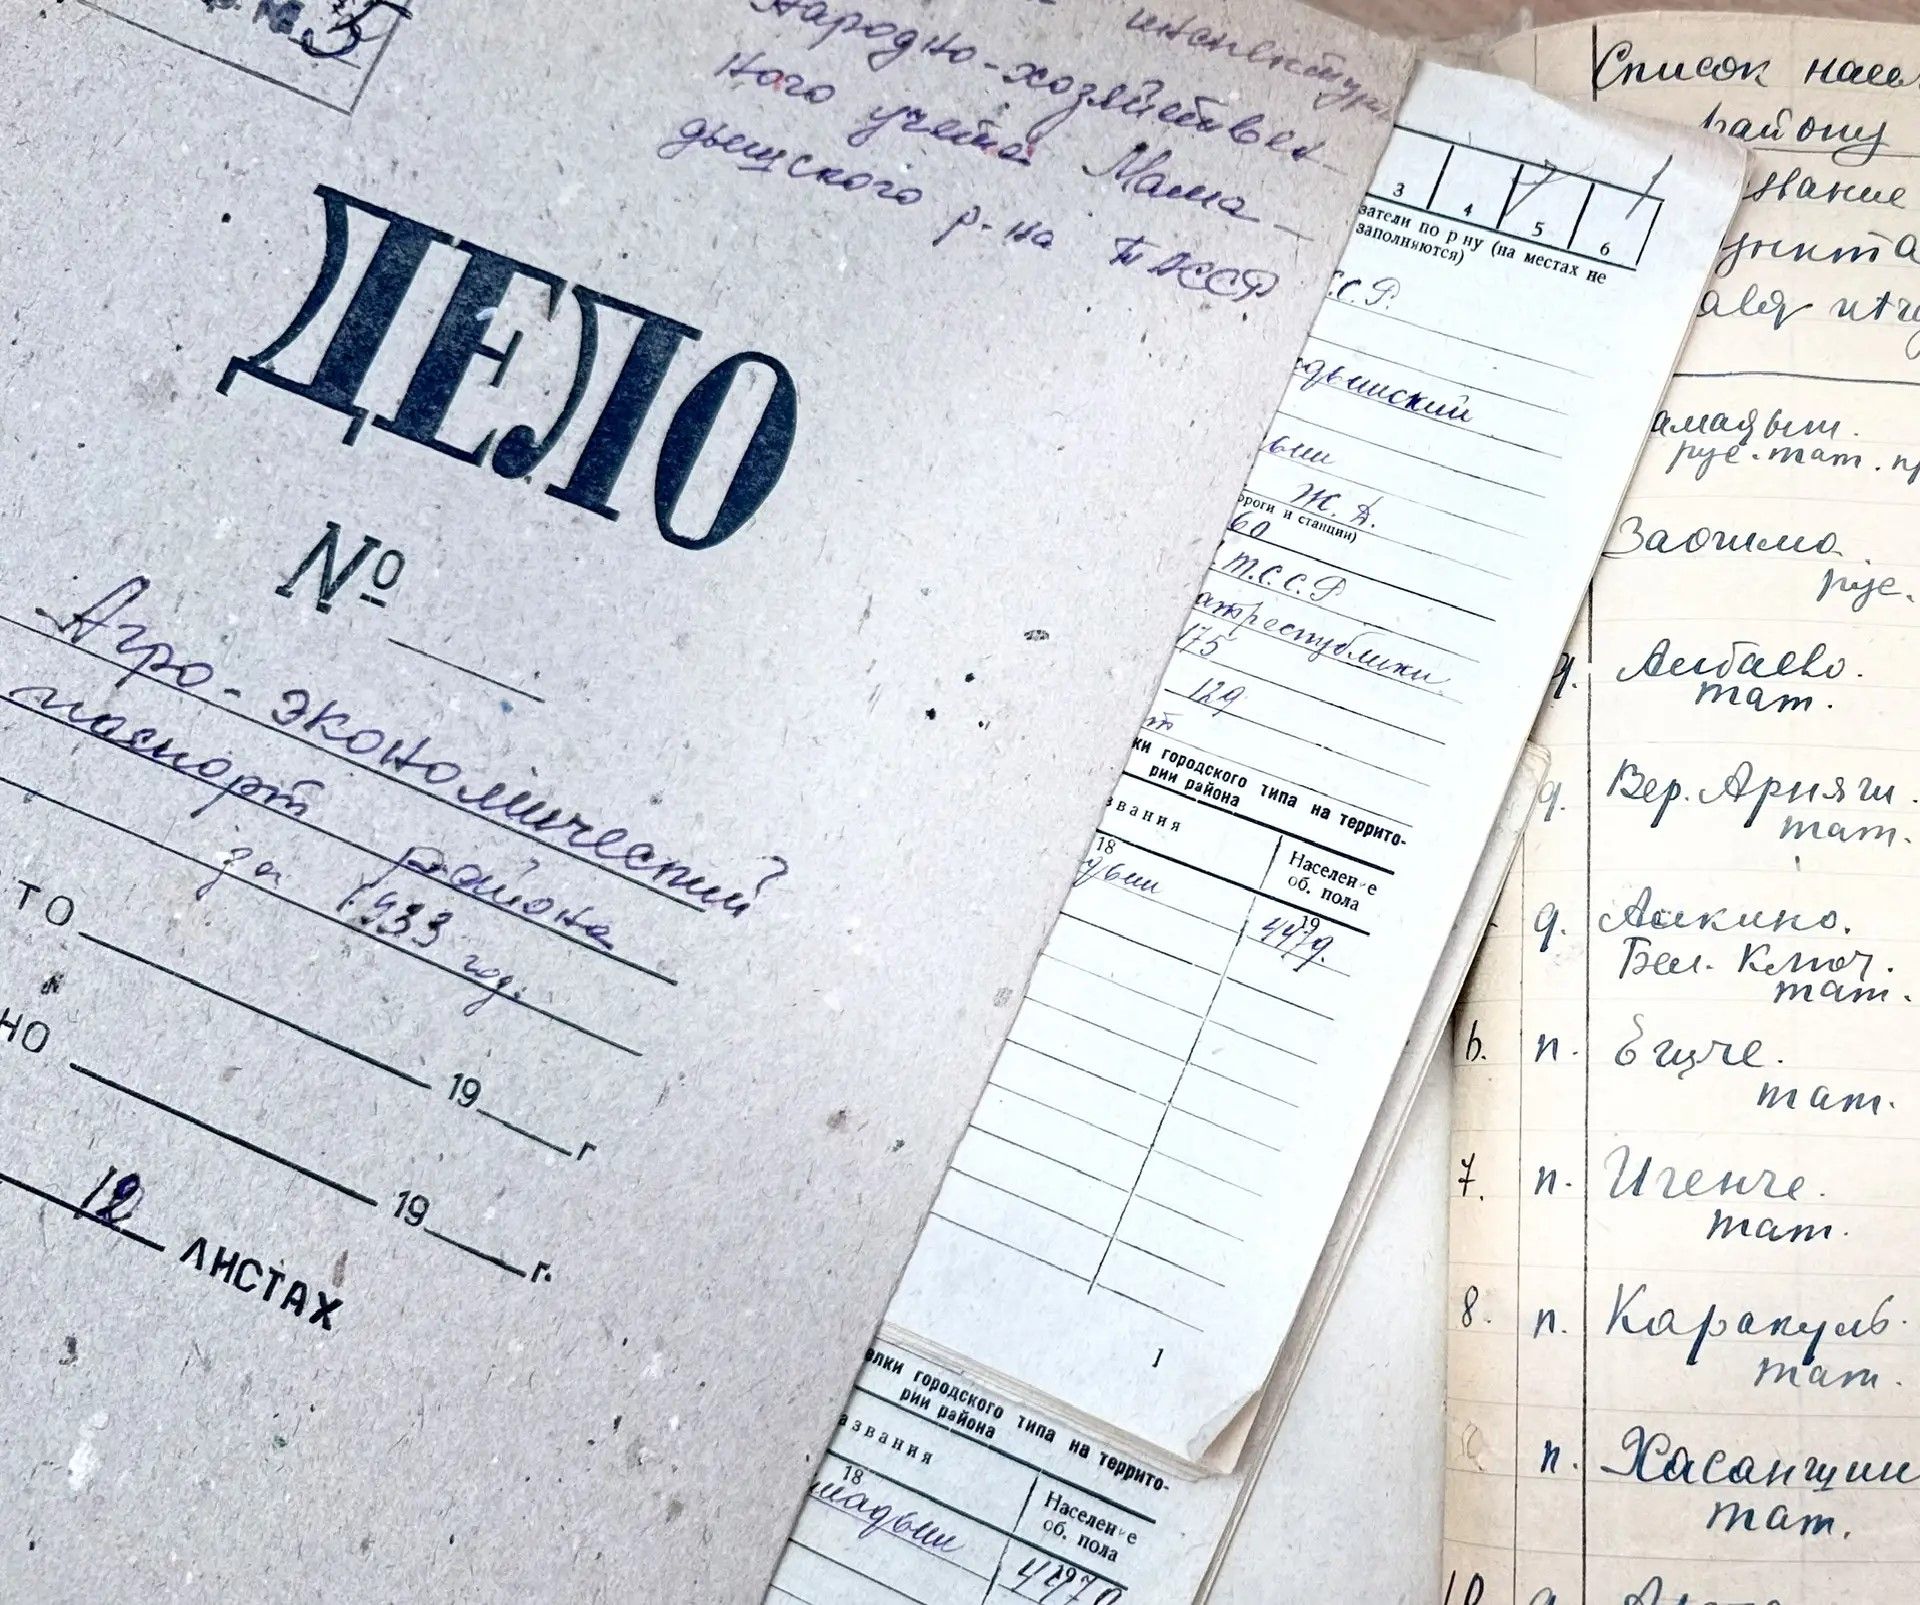 № 5
инспектуры
Народно-хозяйствен-
ного учета Мама-
дышского р-на ТАССР
ДЕЛО
№
Агро-экономический
паспорт района
за 1933 год.
ТО 19 г
НО 19 г.
12 ЛИСТАХ
3 4 5 6
затели по р ну (на местах не
заполняются)
С.С.Р.
дышский
ыш
Ж.Д.
ороги и станции)
60
Т.С.С.Р
атреспублики
175
129
т
ки городского типа на террито-
рии района
звания
Населен е
об. пола
18 19
дыш 4479.
1
елки городского типа на террито-
рии района
азвания
Населен е
об. пола
18 19
мадыш 4479
Список насел
району
звание
ункта
амадыш.
рус. тат.
Заошма
рус.
д. Албаево.
тат.
д. Вер. Арняш.
тат.
д. Алкино.
Бел. Ключ.
тат.
6. п. Ецче.
тат.
7. п. Игенче.
тат.
8. п. Каракуль.
тат.
п. Хасаншин
тат.
10 д.